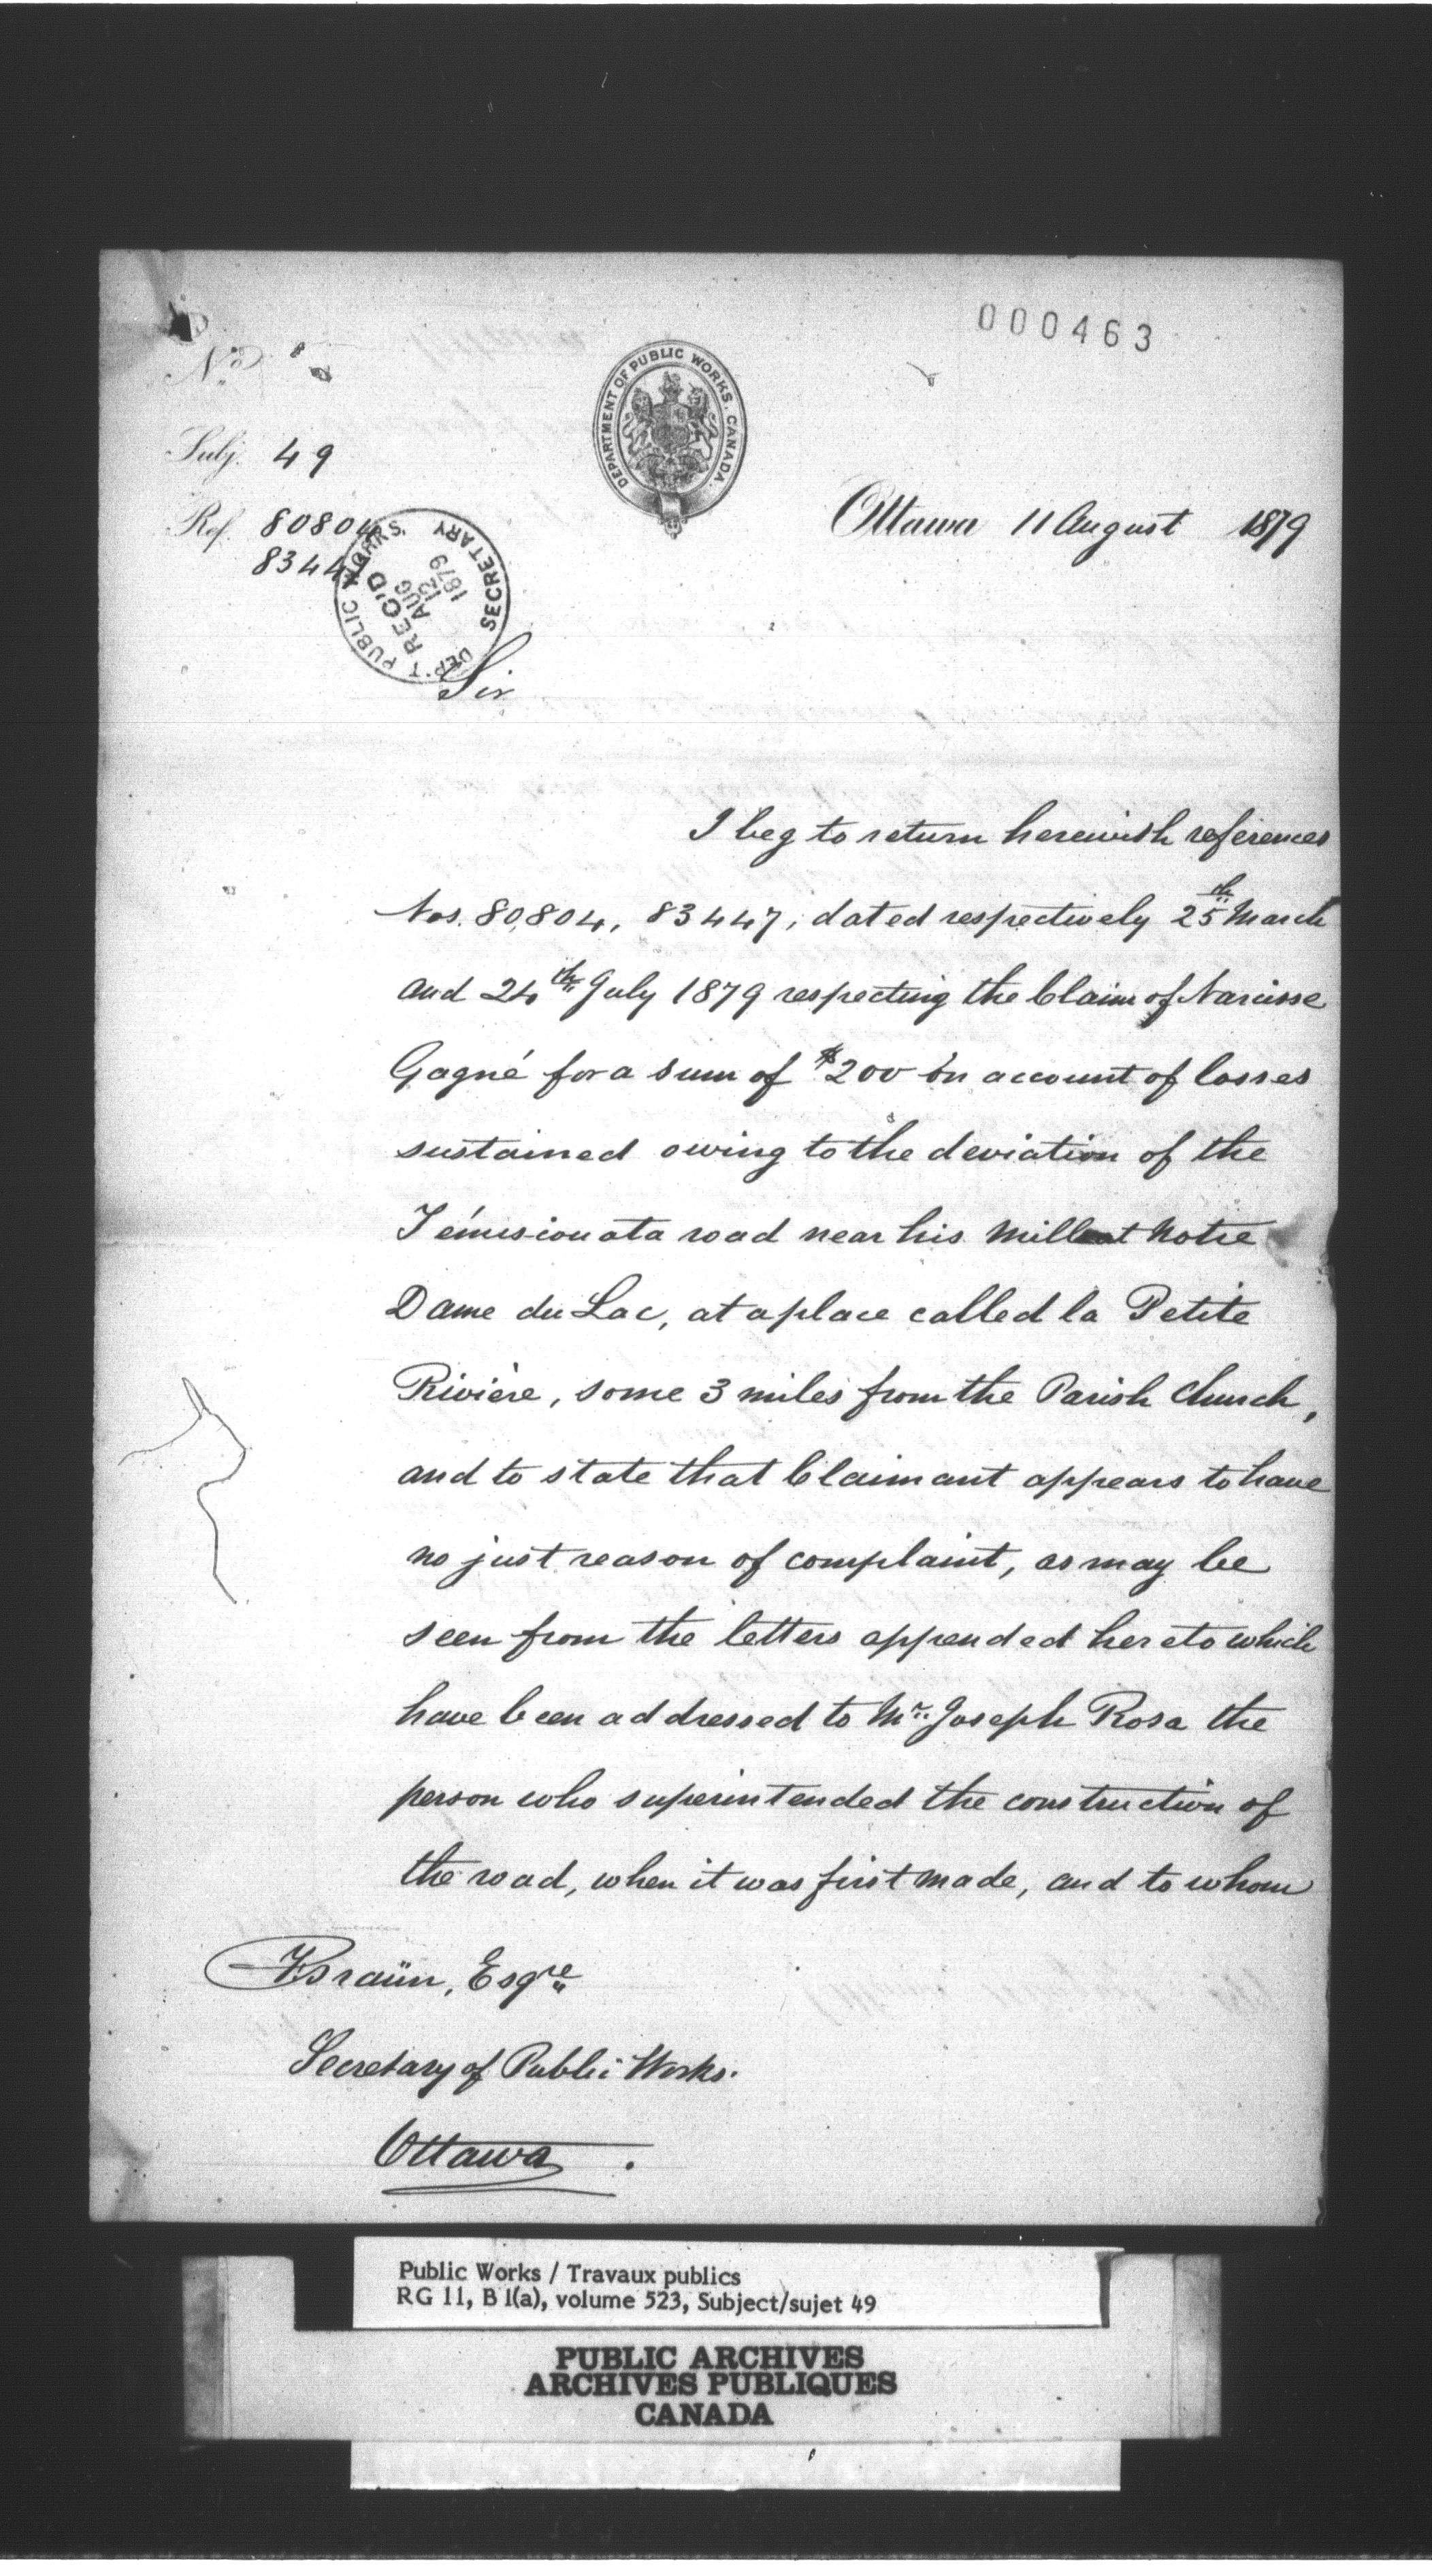 000463
No.
DEPARTMENT OF PUBLIC WORKS. CANADA.
Subj. 49
Ref. 80804
83447
DEP'T PUBLIC WORKS. SECRETARY
REC'D
AUG
12
1879
Ottawa 11 August 1879
Sir
I beg to return herewith references
Nos. 80,804, 83447, dated respectively 25th March
and 24th July 1879 respecting the Claim of Narcisse
Gagné for a sum of $200 on account of losses
sustained owing to the deviation of the
Témiscouata road near his Mill at Notre
Dame du Lac, at a place called la Petite
Rivière, some 3 miles from the Parish Church,
and to state that Claimant appears to have
no just reason of complaint, as may be
seen from the letters appended hereto which
have been addressed to Mr. Joseph Rosa the
person who superintended the construction of
the road, when it was first made, and to whom
F Braün, Esqre
Secretary of Public Works.
Ottawa.
Public Works / Travaux publics
RG 11, B 1(a), volume 523, Subject/sujet 49
PUBLIC ARCHIVES
ARCHIVES PUBLIQUES
CANADA